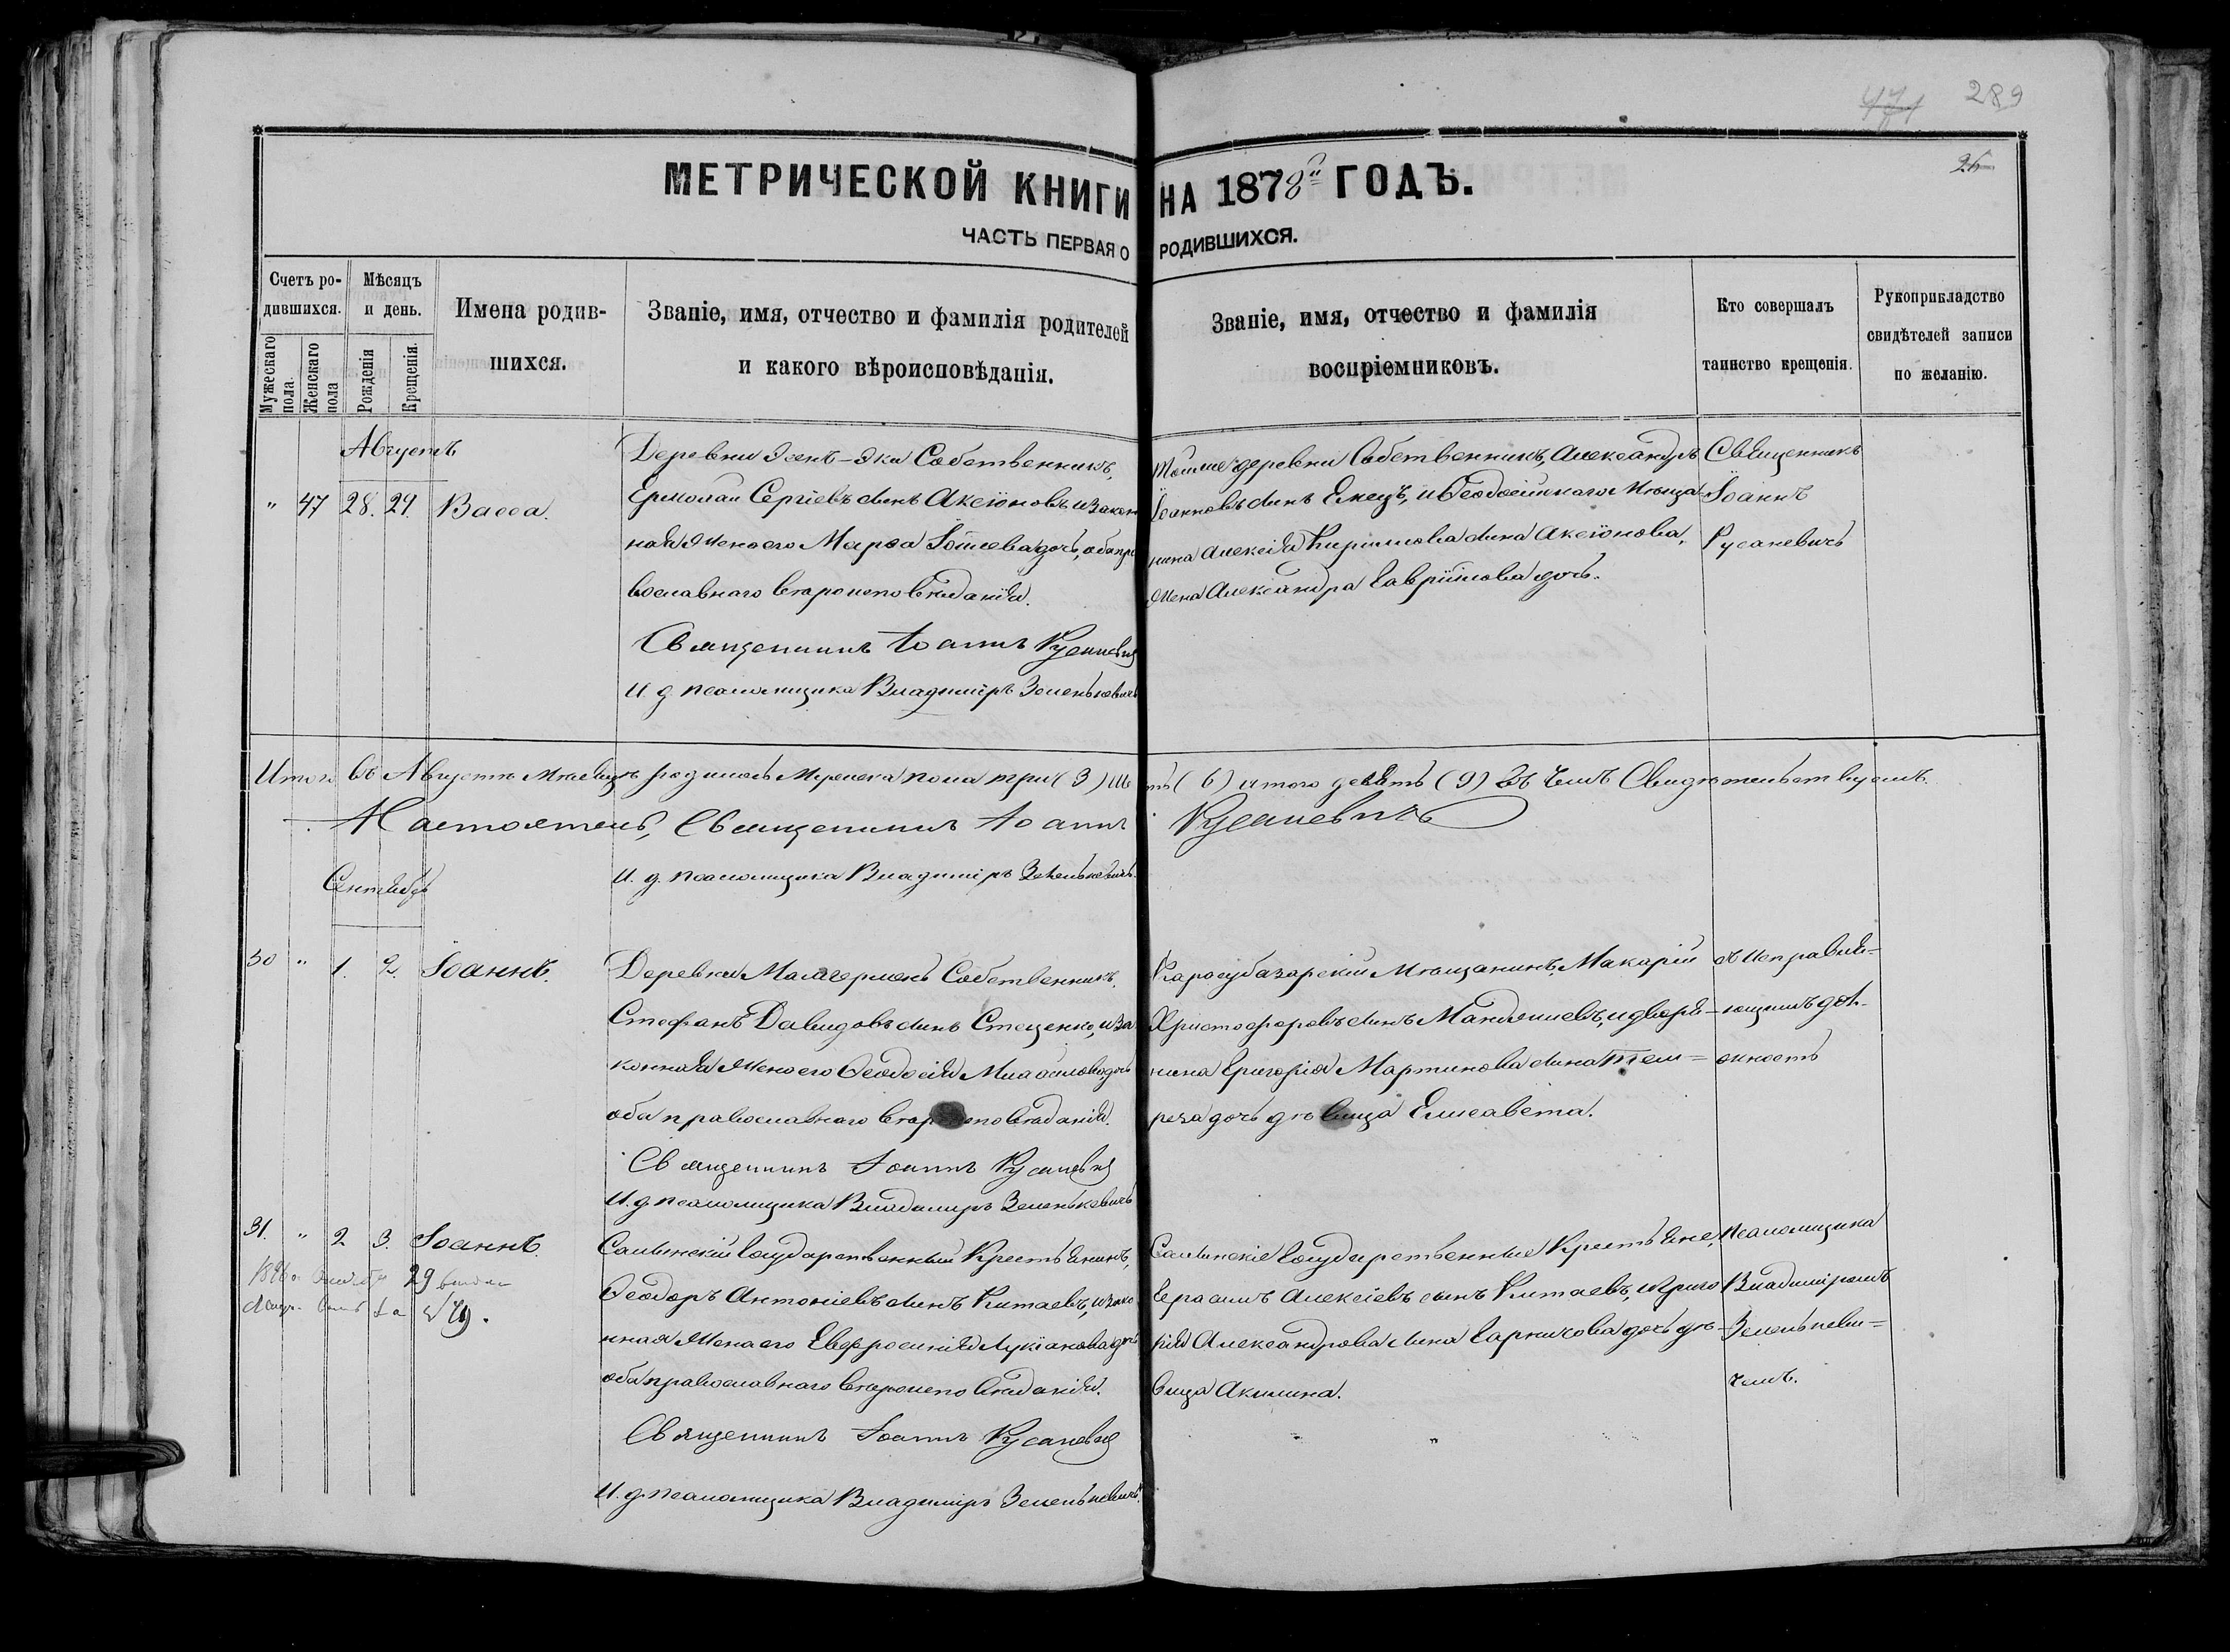 471 289
26
МЕТРИЧЕСКОЙ КНИГИ НА 1878й ГОДЪ.
ЧАСТЬ ПЕРВАЯ О РОДИВШИХСЯ.
Счетъ ро-
дившихся.
Мужескаго пола.
Женскаго пола
Мѣсяцъ
и день.
Рожденія
Крещенія.
Имена родив-
шихся.
Званіе, имя, отчество и фамилія родителей
и какого вѣроисповѣданія.
Званіе, имя, отчество и фамилія
воспріемниковъ.
Кто совершалъ
таинство крещенія.
Рукоприкладство
свидѣтелей записи
по желанію.
Августъ
" 47 28. 29. Васса.
Деревни Собственникъ,
Ермолай Сергіевъ сынъ Аксіоновъ и закон
ная жена его Марѳа дочь, оба пра
вославнаго вѣроисповѣданія.
Священникъ Іоаннъ Русаневичъ
И. д. псаломщика Владиміръ Зеленькевичъ
тойже деревни Собственникъ, Александръ
Іоанновъ сынъ Емецъ, и Ѳеодосійскаго Мѣща
нина Алексія Кирилова сына Аксіонова,
жена Александра Гавріилова дочь.
Священникъ
Іоаннъ
Русаневичъ
Итого въ Августѣ Мѣсяцѣ родилось Мужеска пола три (3) ше (6) итого девять (9) Въ чемъ Свидѣтельствуемъ.
Настоятель, Священникъ Іоаннъ Русаневичъ
И. д. псаломщика Владиміръ Зеленькевичъ.
Сентябрь
30 " 1. 2. Іоаннъ.
Деревни Собственникъ
Стефанъ Давидовъ сынъ Стеценко, и за
конная жена его Ѳеодосія дочь
оба православнаго вѣроисповѣданія.
Священникъ Іоаннъ Русаневичъ
И. д. псаломщика Владиміръ Зеленькевичъ
Карасубазарскій Мѣщанинъ, Макарій
Христофоровъ сынъ и дворя-
нина Григорія Мартинова сына
реза дочь дѣвица Елисавета.
съ исправля-
ющимъ дол-
жность
31. " 2 3. Іоаннъ.
29
№ 79.
Саблинскій Государственный Крестьянинъ,
Ѳеодоръ Антоніевъ сынъ Китаевъ, и зако
нная жена его Евфросинія Лукіанова дочь
оба православнаго вѣроисповѣданія.
Священникъ Іоаннъ Русаневичъ
И. д. псаломщика Владиміръ Зеленькевичъ.
Саблинскіе Государственные Крестьяне,
Герасимъ Алексіевъ сынъ Китаевъ, и Григо
рія Александрова сына дочь дѣ-
вица Акилина.
псаломщика
Владиміромъ
Зеленькеви=
чемъ.